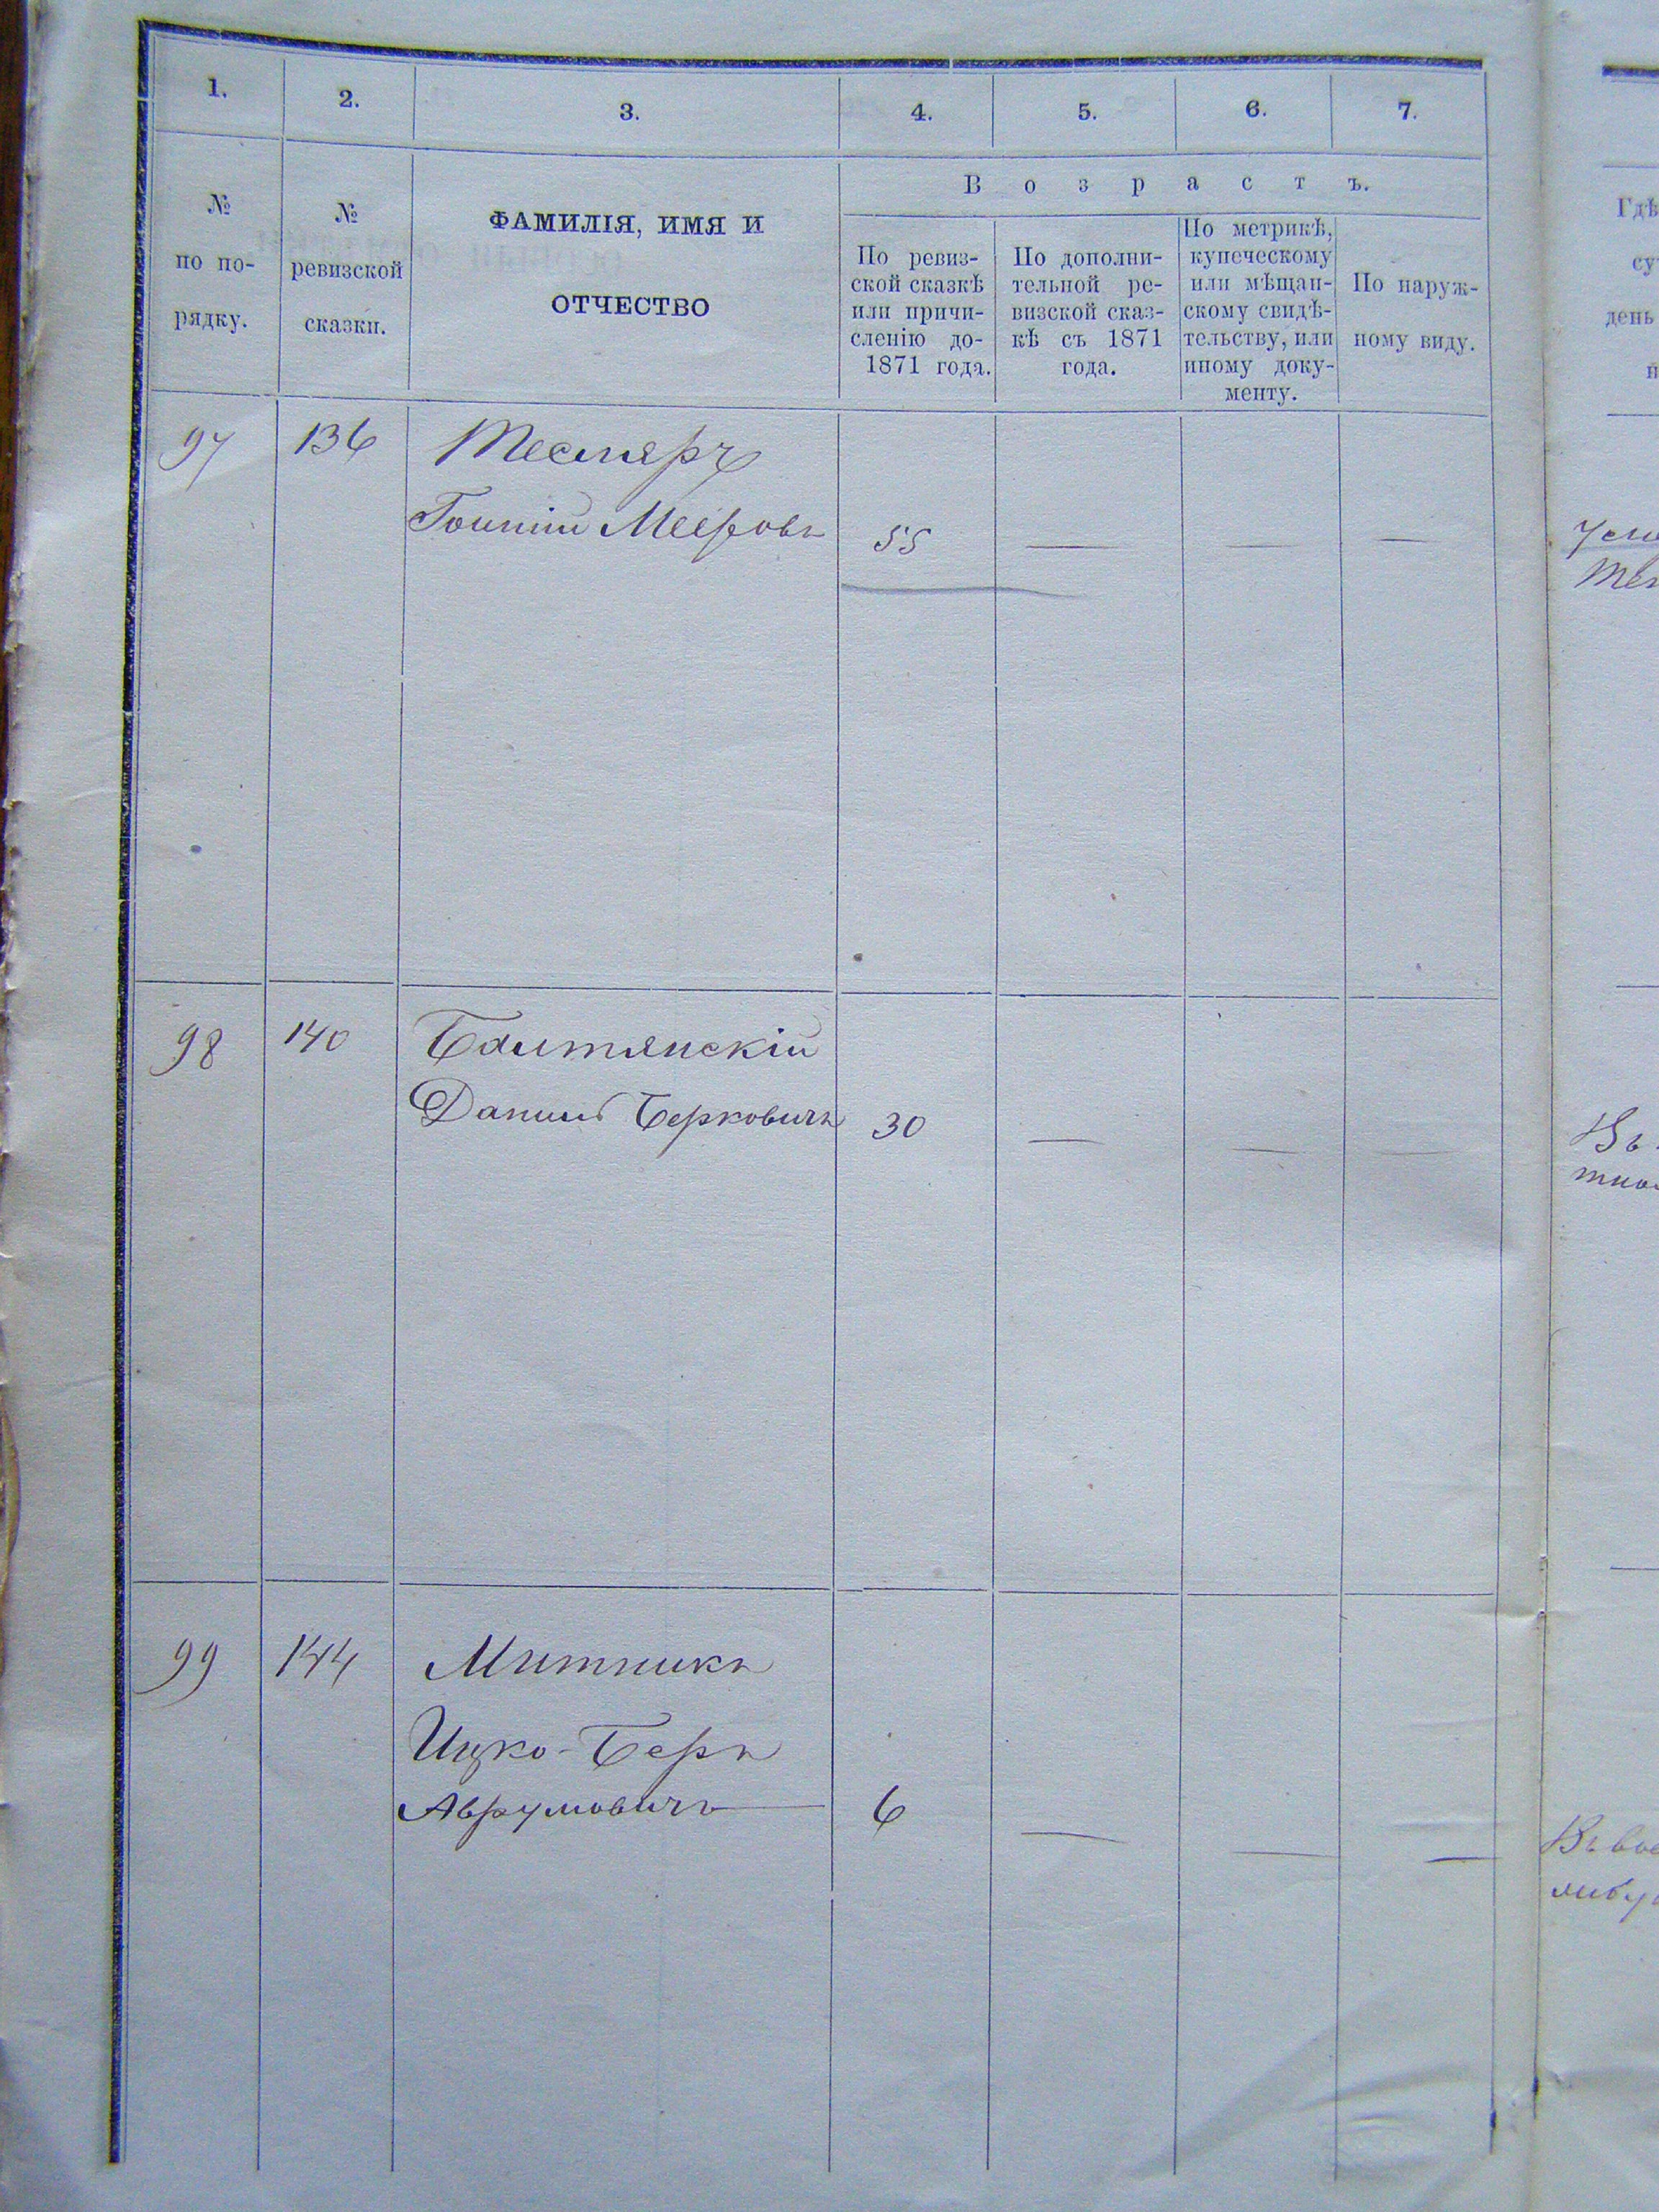 1. 2. 3. 4. 5. 6. 7.
№ по по-рядку.
№ ревизской сказки.
ФАМИЛІЯ, ИМЯ И
ОТЧЕСТВО
Возрастъ.
По ревиз-
ской сказкѣ
или причи-
сленію до-
1871 года.
По дополни-
тельной ре-
визской сказ-
кѣ съ 1871
года.
По метрикѣ,
купеческому
или мѣщан-
скому свидѣ-
тельству, или
иному доку-
менту.
По наруж-
ному виду.
97 136 Тесляръ
Мееровъ 55 — — —
98 140 Балтянскій
Данилъ Берковичъ 30 — — —
99 144 Митникъ
Ицко-Беръ
Аврумовичъ 6 — — —
Гдѣ
су
день
Въ